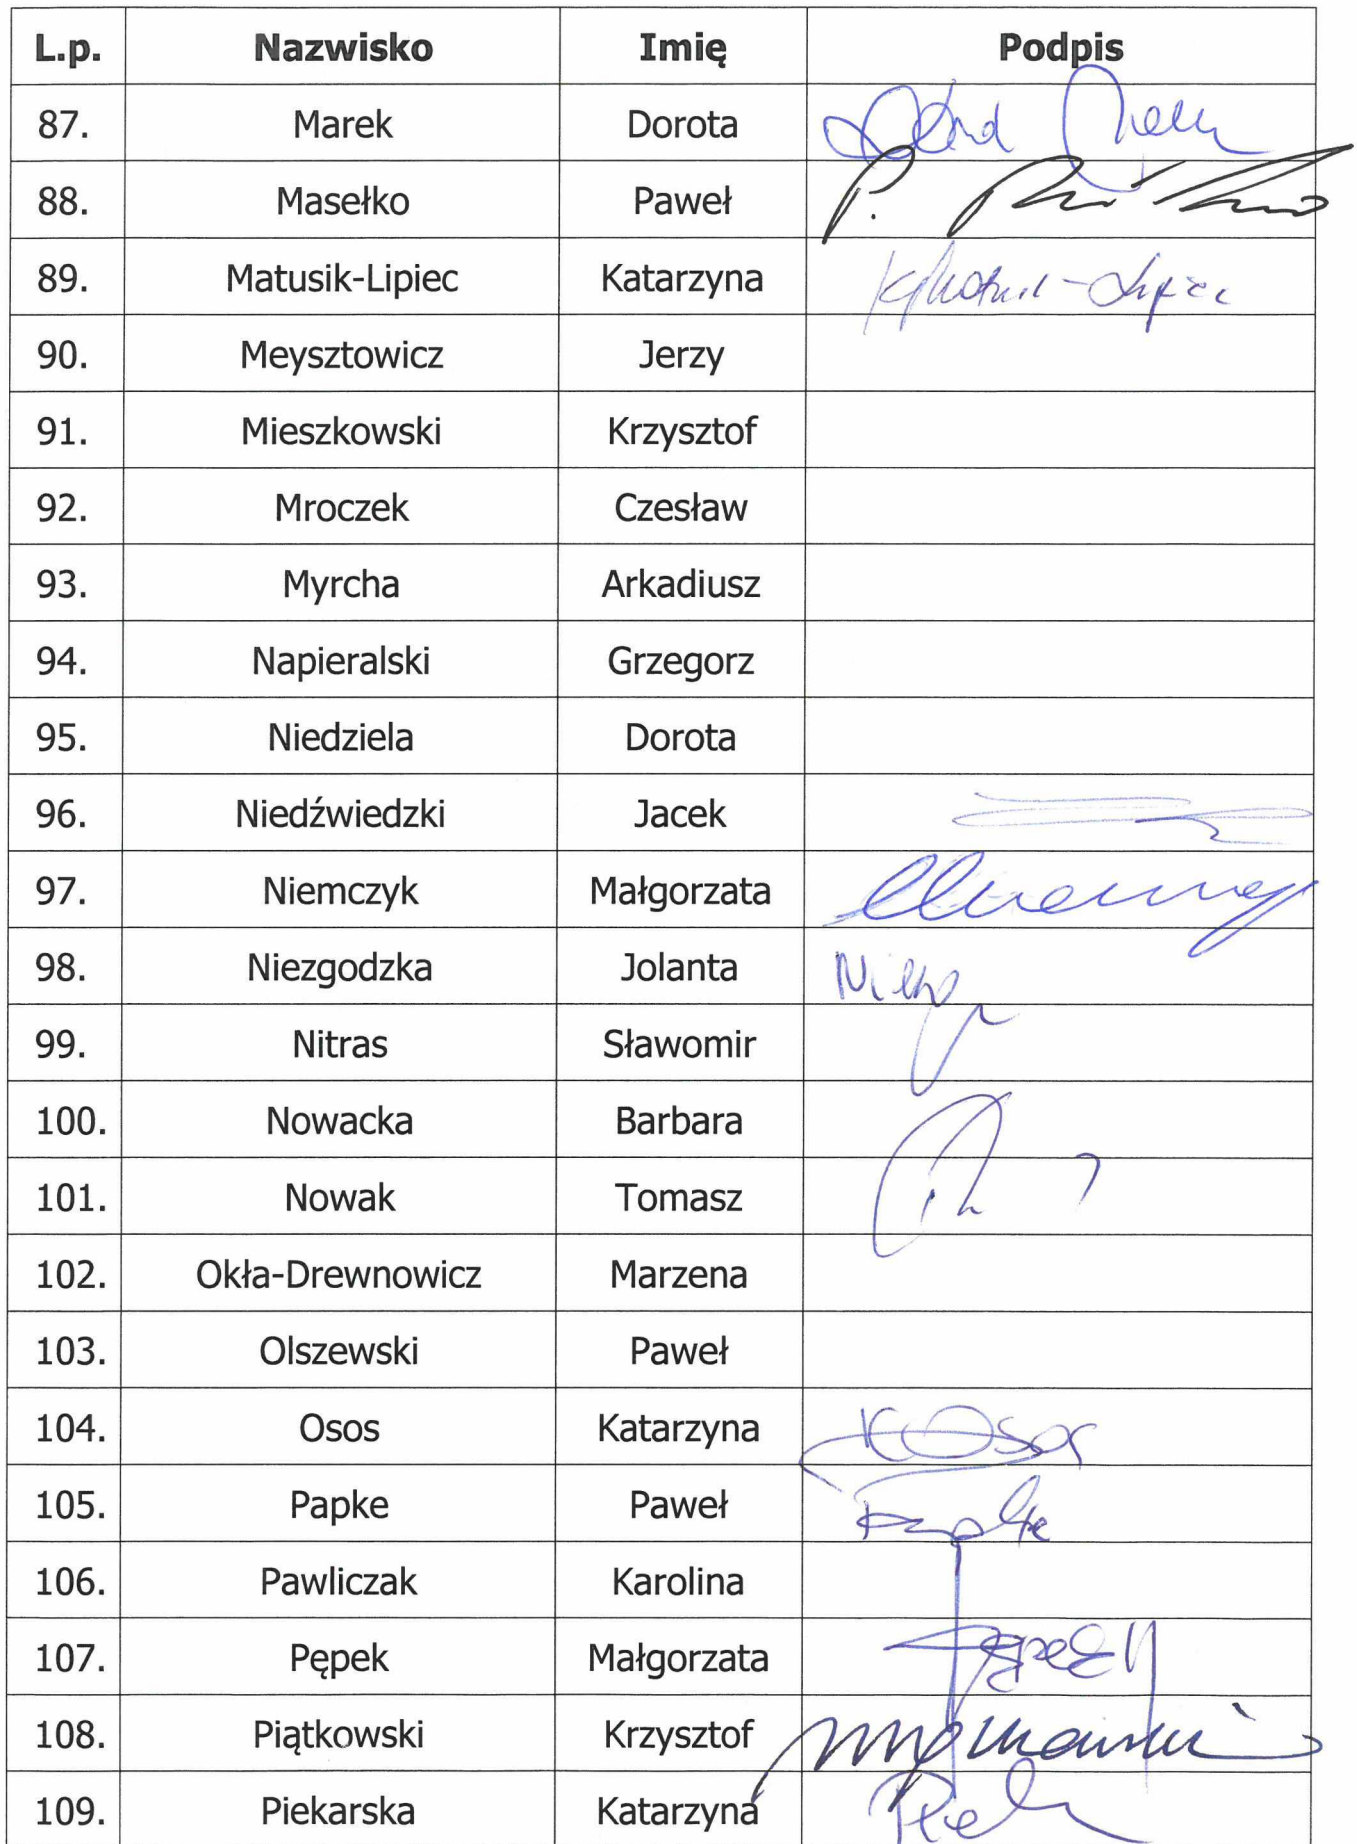 L.p. Nazwisko Imię Podpis
87. Marek Dorota
88. Masełko Paweł
89. Matusik-Lipiec Katarzyna
90. Meysztowicz Jerzy
91. Mieszkowski Krzysztof
92. Mroczek Czesław
93. Myrcha Arkadiusz
94. Napieralski Grzegorz
95. Niedziela Dorota
96. Niedźwiedzki Jacek
97. Niemczyk Małgorzata
98. Niezgodzka Jolanta
99. Nitras Sławomir
100. Nowacka Barbara
101. Nowak Tomasz
102. Okła-Drewnowicz Marzena
103. Olszewski Paweł
104. Osos Katarzyna KOsos
105. Papke Paweł
106. Pawliczak Karolina
107. Pępek Małgorzata
108. Piątkowski Krzysztof
109. Piekarska Katarzyna